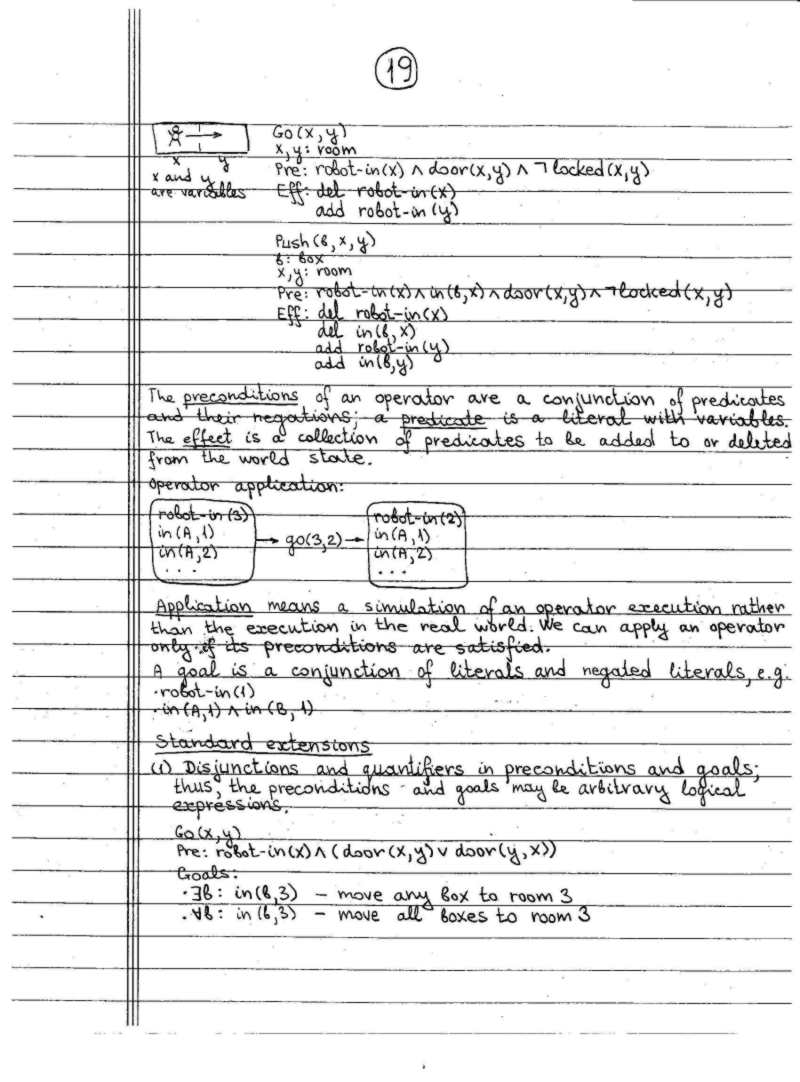 19
x y
x and y
are variables
Go(x, y)
x, y: room
Pre: robot-in(x) ∧ door(x,y) ∧ ¬locked(x,y)
Eff: del robot-in(x)
add robot-in(y)
Push(b, x, y)
b: box
x, y: room
Pre: robot-in(x) ∧ in(b,x) ∧ door(x,y) ∧ ¬locked(x,y)
Eff: del robot-in(x)
del in(b, x)
add robot-in(y)
add in(b,y)
The preconditions of an operator are a conjunction of predicates
and their negations; a predicate is a literal with variables.
The effect is a collection of predicates to be added to or deleted
from the world state.
Operator application:
robot-in(3)
in(A,1)
in(A,2)
...
go(3,2)
robot-in(2)
in(A,1)
in(A,2)
...
Application means a simulation of an operator execution rather
than the execution in the real world. We can apply an operator
only if its preconditions are satisfied.
A goal is a conjunction of literals and negated literals, e.g.
·robot-in(1)
·in(A,1) ∧ in(B,1)
Standard extensions
(1) Disjunctions and quantifiers in preconditions and goals;
thus, the preconditions and goals may be arbitrary logical
expressions.
Go(x,y)
Pre: robot-in(x) ∧ (door(x,y) ∨ door(y,x))
Goals:
·∃b: in(b,3) – move any box to room 3
·∀b: in(b,3) – move all boxes to room 3